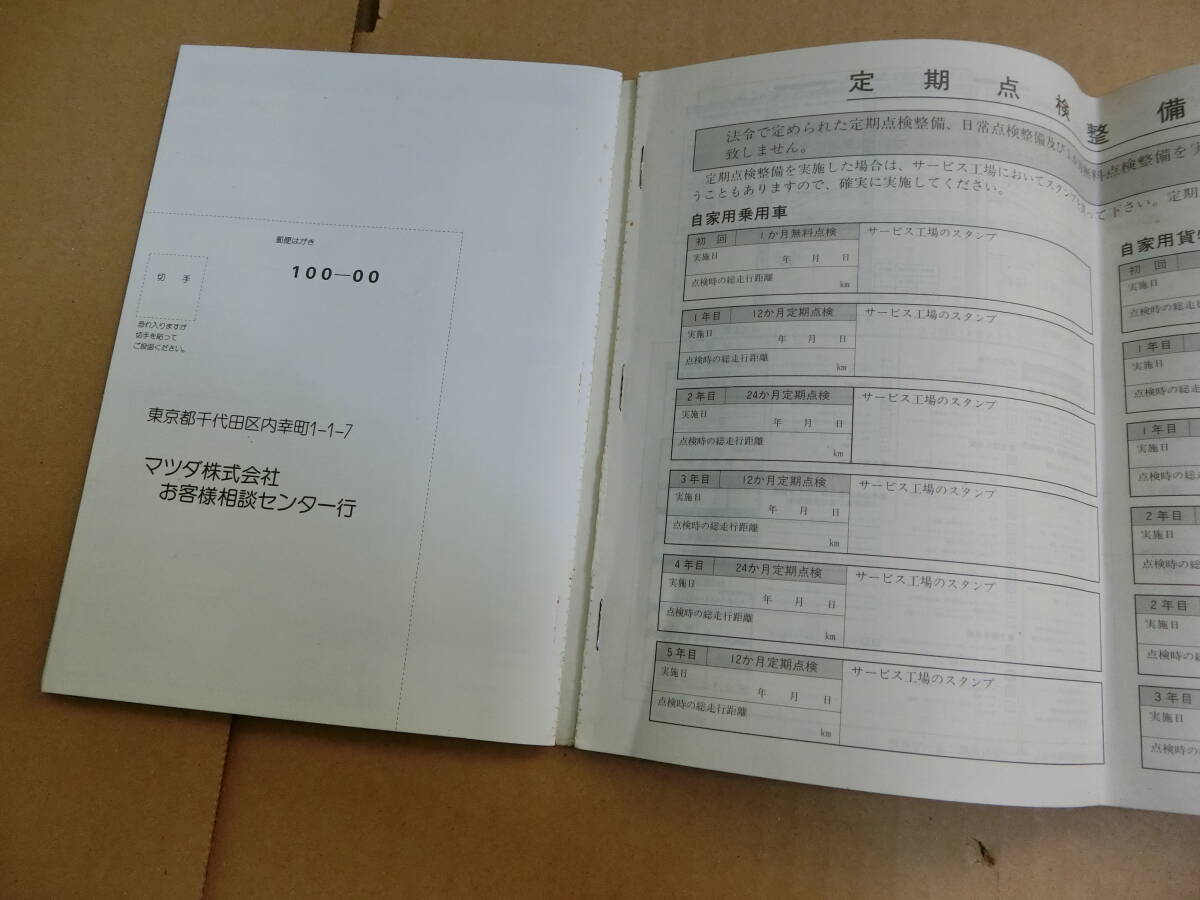 郵便はがき
100—00
切 手
恐れ入りますが
切手を貼って
ご投函ください。
東京都千代田区内幸町1-1-7
マツダ株式会社
お客様相談センター行
定 期 点 検 整 備
法令で定められた定期点検整備、日常点検整備及び1か月無料点検整備を実
致しません。
定期点検整備を実施した場合は、サービス工場においてスタンプを貰って下さい。定期
うこともありますので、確実に実施してください。
自家用乗用車
初 回 1か月無料点検 サービス工場のスタンプ
実施日
年 月 日
点検時の総走行距離
km
1年目 12か月定期点検 サービス工場のスタンプ
実施日
年 月 日
点検時の総走行距離
km
2年目 24か月定期点検 サービス工場のスタンプ
実施日
年 月 日
点検時の総走行距離
km
3年目 12か月定期点検 サービス工場のスタンプ
実施日
年 月 日
点検時の総走行距離
km
4年目 24か月定期点検 サービス工場のスタンプ
実施日
年 月 日
点検時の総走行距離
km
5年目 12か月定期点検 サービス工場のスタンプ
実施日
年 月 日
点検時の総走行距離
km
自家用貨物
初 回
実施日
点検時の総走
1年目
実施日
点検時の総
1年目
実施日
点検時の総
2年目
実施日
点検時の総
2年目
実施日
点検時の総
3年目
実施日
点検時の